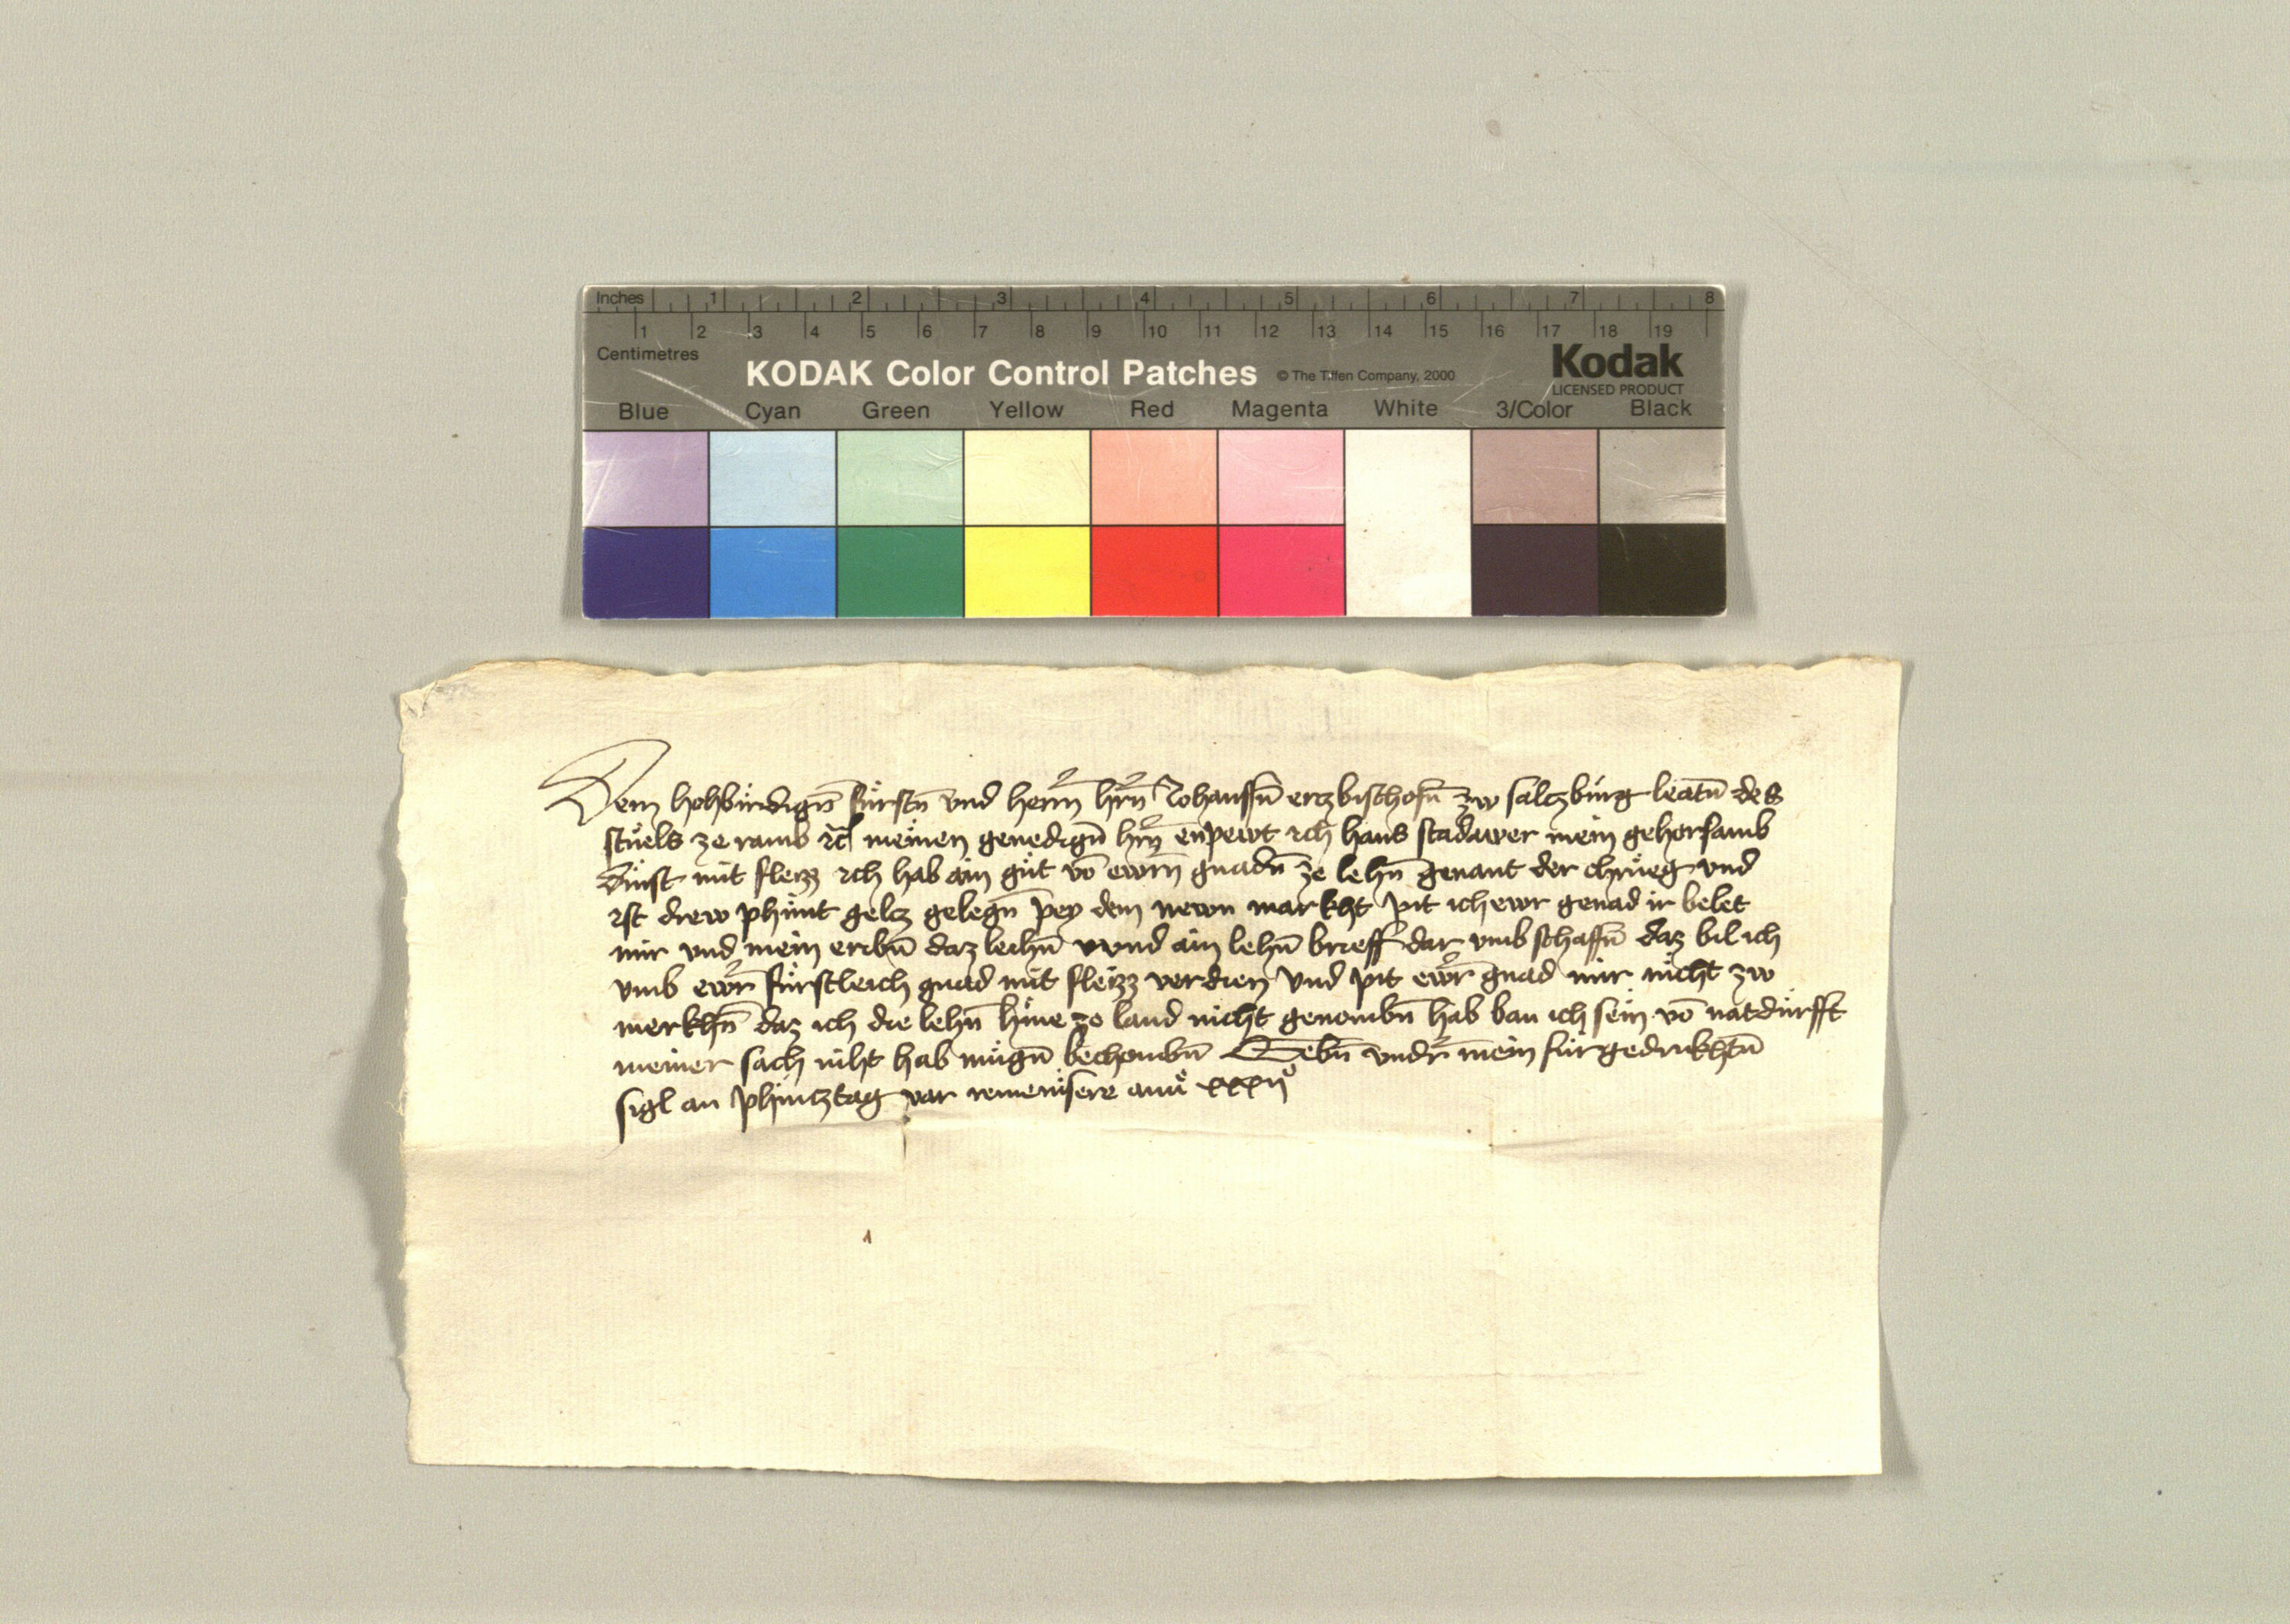 Inches 1 2 3 4 5 6 7 8
1 2 3 4 5 6 7 8 9 10 11 12 13 14 15 16 17 18 19
Centimetres
KODAK Color Control Patches © The Tiffen Company, 2000 Kodak
LICENSED PRODUCT
Blue Cyan Green Yellow Red Magenta White 3/Color Black
Dem hohbirdign̄ fürstn̄ vnd herrn̄ hrn̄ Johanssn̄ erczbischofn̄ zw salczburg leatn̄ des
stuels ze ramb meinen genedign̄ hrn̄ enpewt ich hans stadawer mein gehorsamb
dinst mit fleizz ich hab ain gut vō ewrn̄ gnadn̄ ze lehn̄ genant der chrueg vnd
ist drew phunt gelcz gelegn̄ pey dem newn markht pit ich ewr genad ir belet
mir vnd mein eribn̄ daz leihn̄ vvnd ain lehn̄ brieff dar vmb schaffn̄ daz bil ich
vmb ewr̄ fürstleich gnad mit fleizz verdien vnd pit ewr̄ gnad mir nicht zw
merkhn̄ daz ich die lehn̄ hine zo land nicht genombn̄ hab ban ich sein vō natdurfft
meiner sach niht hab mugn̄ bechombn̄ Gebn̄ vndr̄ mein fürgedrukhtn̄
sigl an phincztag var remenisere xxxii°